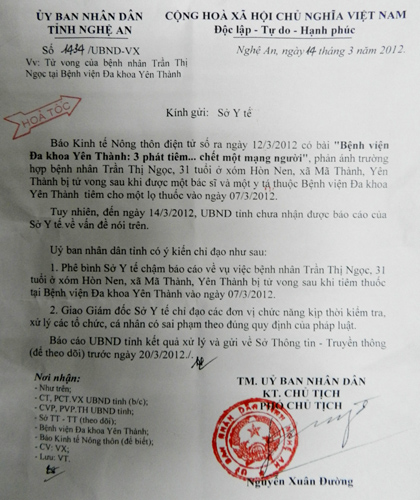 ỦY BAN NHÂN DÂN
TỈNH NGHỆ AN
CỘNG HOÀ XÃ HỘI CHỦ NGHĨA VIỆT NAM
Độc lập - Tự do - Hạnh phúc
Số 1434/UBND-VX
Nghệ An, ngày 14 tháng 3 năm 2012.
Vv: Tử vong của bệnh nhân Trần Thị
Ngọc tại Bệnh viện Đa khoa Yên Thành
HOẢ TỐC
Kính gửi: Sở Y tế
Báo Kinh tế Nông thôn điện tử số ra ngày 12/3/2012 có bài "Bệnh viện
Đa khoa Yên Thành: 3 phát tiêm... chết một mạng người", phản ánh trường
hợp bệnh nhân Trần Thị Ngọc, 31 tuổi ở xóm Hòn Nen, xã Mã Thành, Yên
Thành bị tử vong sau khi được một bác sĩ và một y tá thuộc Bệnh viện Đa khoa
Yên Thành tiêm cho một lọ thuốc vào ngày 07/3/2012.
Tuy nhiên, đến ngày 14/3/2012, UBND tỉnh chưa nhận được báo cáo của
Sở Y tế về vấn đề nói trên.
Uỷ ban nhân dân tỉnh có ý kiến chỉ đạo như sau:
1. Phê bình Sở Y tế chậm báo cáo về vụ việc bệnh nhân Trần Thị Ngọc, 31
tuổi ở xóm Hòn Nen, xã Mã Thành, Yên Thành bị tử vong sau khi tiêm thuốc
tại Bệnh viện Đa khoa Yên Thành vào ngày 07/3/2012.
2. Giao Giám đốc Sở Y tế chỉ đạo các đơn vị chức năng kịp thời kiểm tra,
xử lý các tổ chức, cá nhân có sai phạm theo đúng quy định của pháp luật.
Báo cáo UBND tỉnh kết quả xử lý và gửi về Sở Thông tin - Truyền thông
(để theo dõi) trước ngày 20/3/2012./.
Nơi nhận:
- Như trên;
- CT, PCT.VX UBND tỉnh (b/c);
- CVP, PVP.TH UBND tỉnh;
- Sở TT - TT (theo dõi);
- Bệnh viện Đa khoa Yên Thành;
- Báo Kinh tế Nông thôn (để biết);
- CV: VX;
- Lưu: VT.
TM. UỶ BAN NHÂN DÂN
KT. CHỦ TỊCH
PHÓ CHỦ TỊCH
Nguyễn Xuân Đường